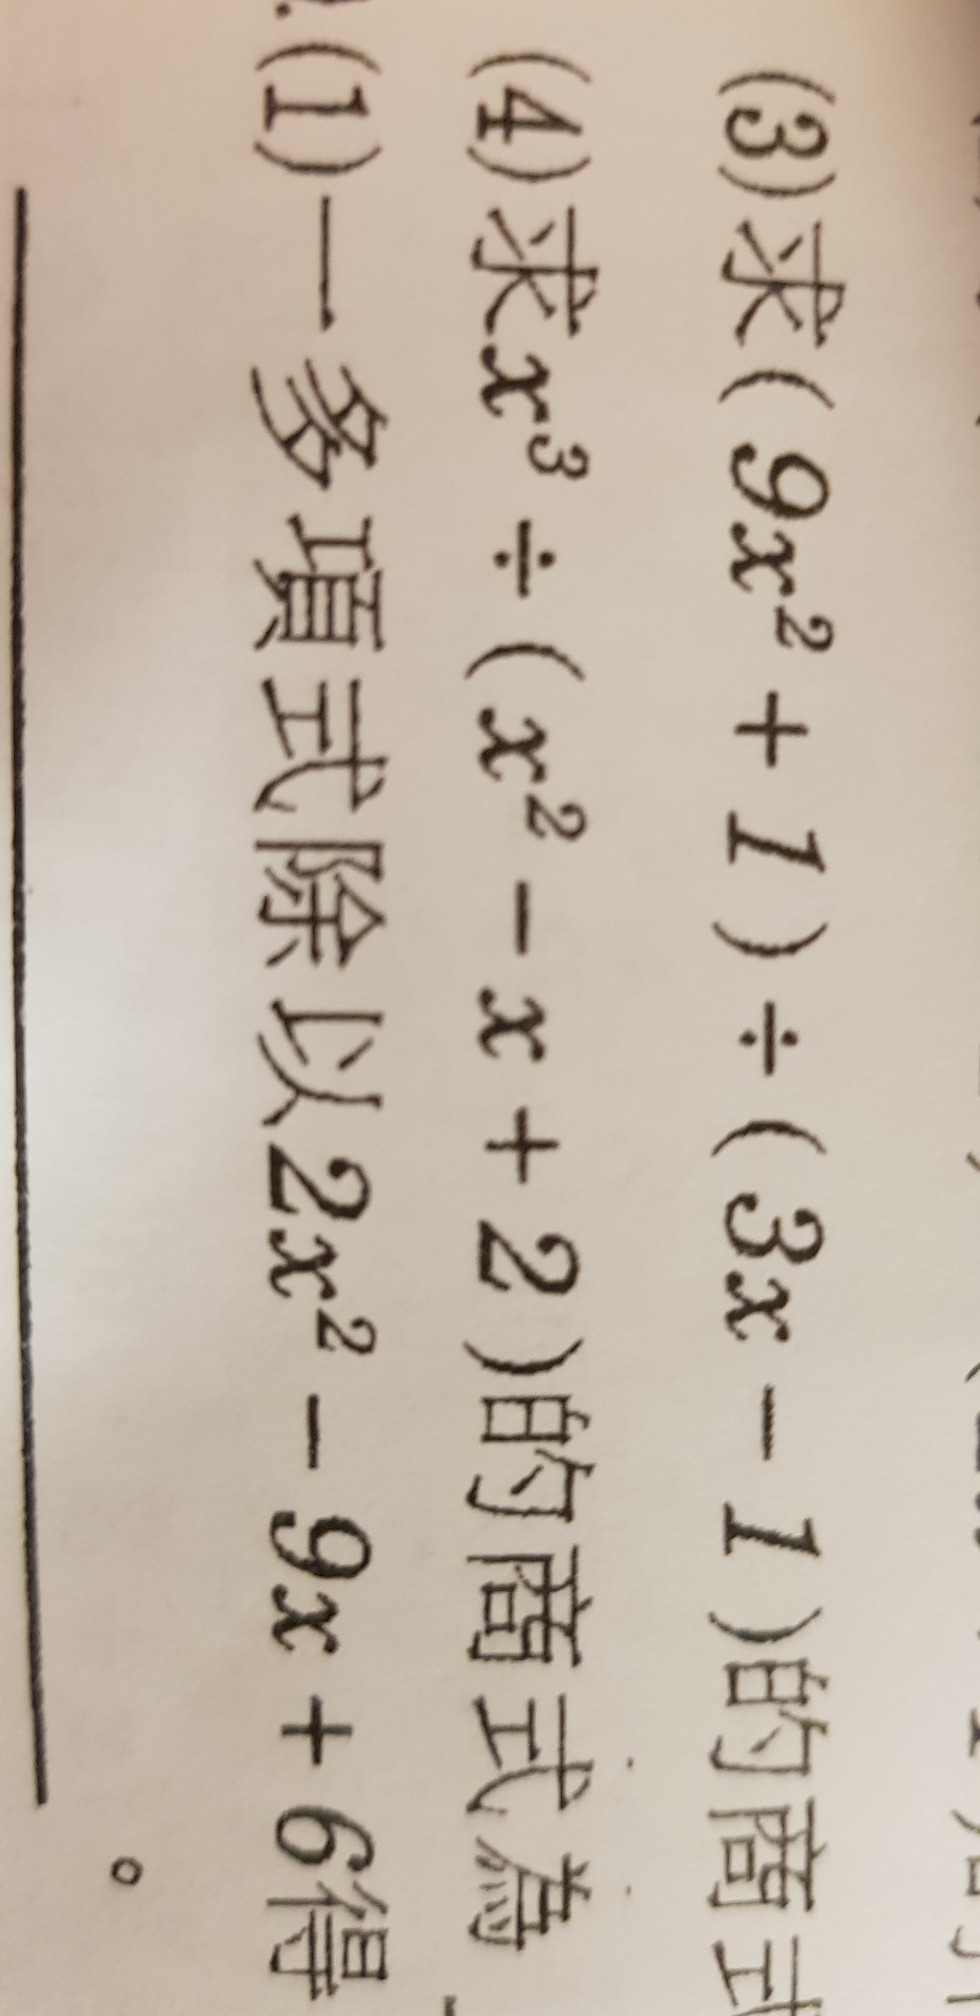 (3)求(9x²+1)÷(3x-1)的商式
(4)求x³÷(x²-x+2)的商式為
.(1)一多項式除以2x²-9x+6得
。